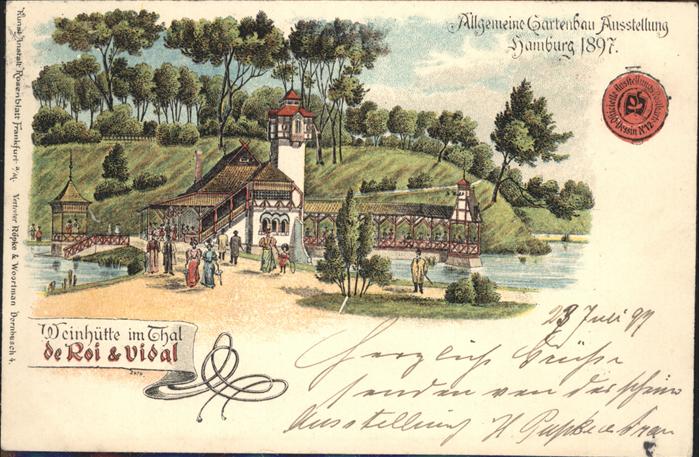 Allgemeine Gartenbau Ausstellung
Hamburg 1897.
Dessin No 12
Kunst-Anstalt Rosenblatt Frankfurt a/M. Vertreter Röpke & Woortman Dornbusch 4.
Weinhütte im Thal
de Roi & Vidal
23 Juli 97
Herzliche Grüsse
senden von der schönen
Ausstellung H